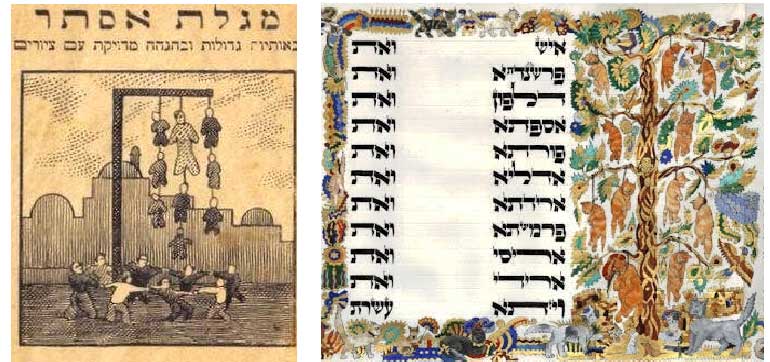 מגלת אסתר
באותיות גדולות ובהגהה מדויקת עם ציורים
איש ואת
פרשנדתא ואת
דלפון ואת
אספתא ואת
פורתא ואת
אדליא ואת
ארידתא ואת
פרמשתא ואת
אריסי ואת
ארדי ואת
ויזתא עשרת